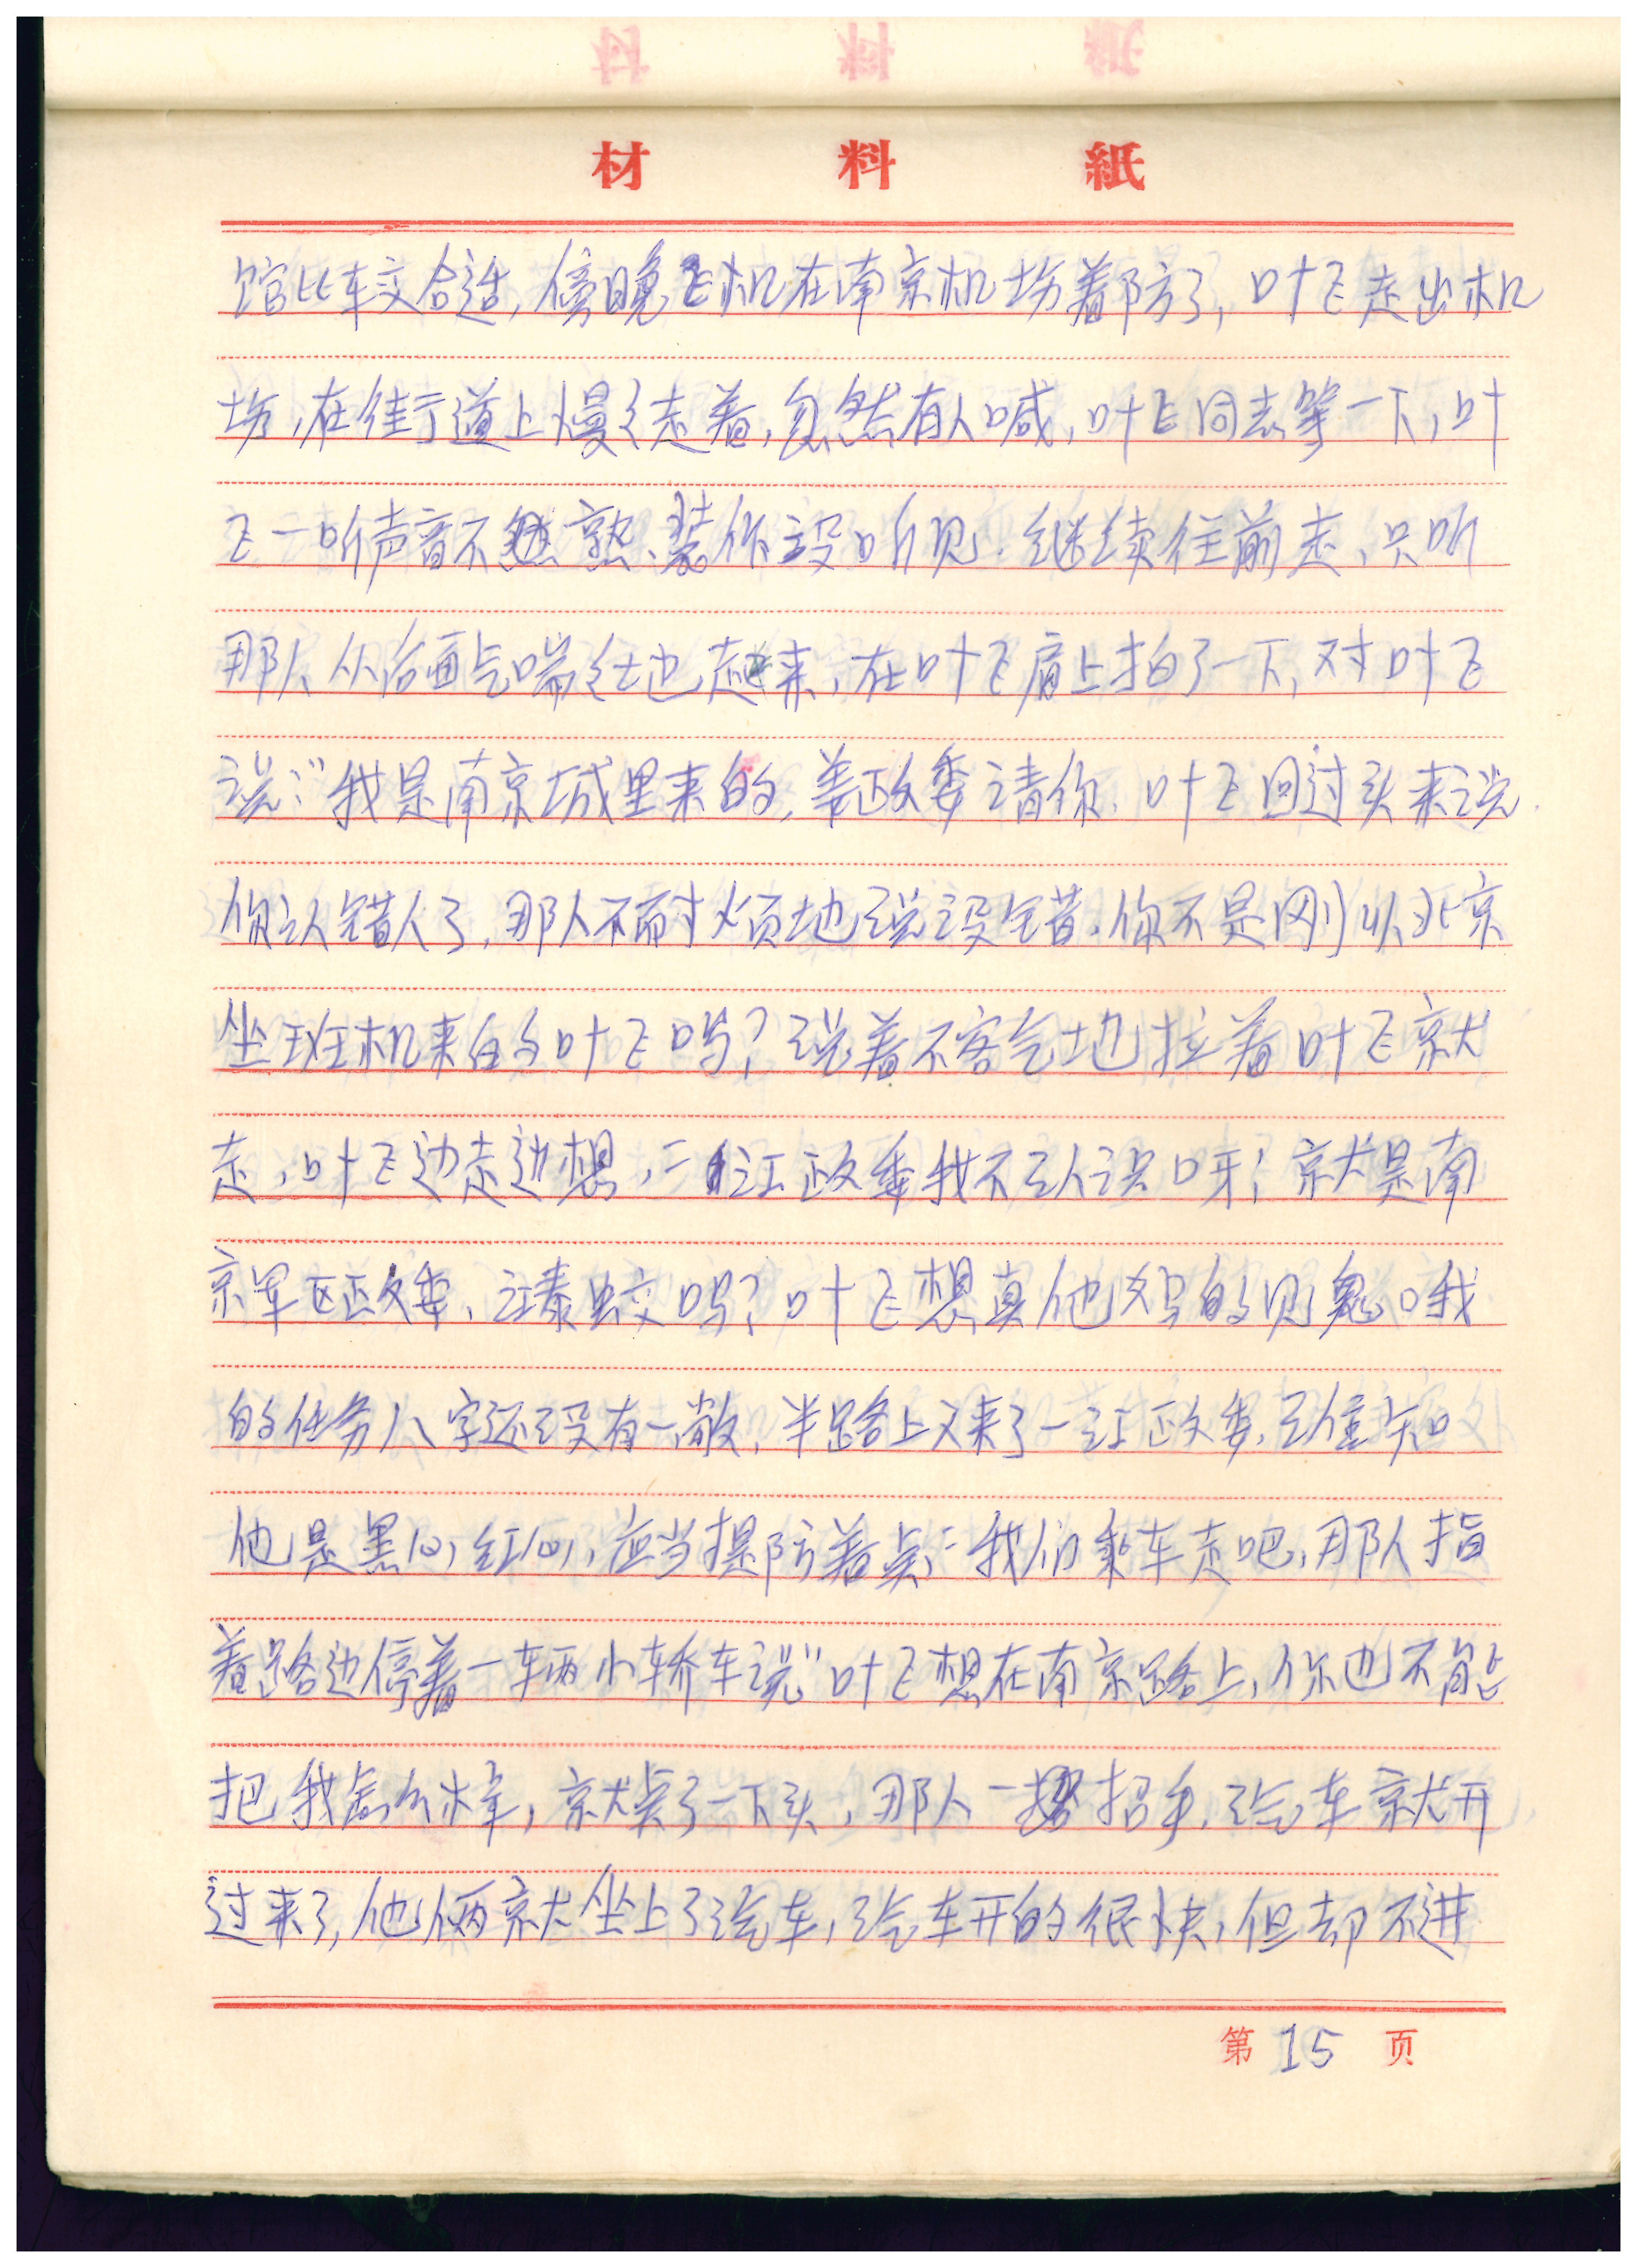 材料紙
馆比较合适,傍晚飞机在南京机场着陆了,叶飞走出机
场,在街道上慢々走着,忽然有人喊,叶飞同志等一下,叶
飞一听声音不熟、装作没听见.继续往前走,只听
那人从后面气喘々地赶来,在叶飞肩上拍了一下,对叶飞
说:"我是南京城里来的,姜政委请你.叶飞回过头来说
你认错人了,那人不耐烦地说没错.你不是刚从北京
坐班机来的叶飞吗?说着不客气地拉着叶飞就
走,叶飞边走边想,"江政委我不认识呀!就是南
京军区政委、江泰蛟吗?叶飞想真他妈的见鬼哦
的任务八字还没有一撇,半路上又来了一江政委,谁知
他是黑心,红心,应当提防着点,"我们乘车走吧,那人指
着路边停着一车辆小轿车说"叶飞想在南京路上,你也不能
把我怎么样,就点了一下头,那人一招手,汽车就开
过来了,他俩就坐上了汽车,汽车开的很快,但却不进
第15页